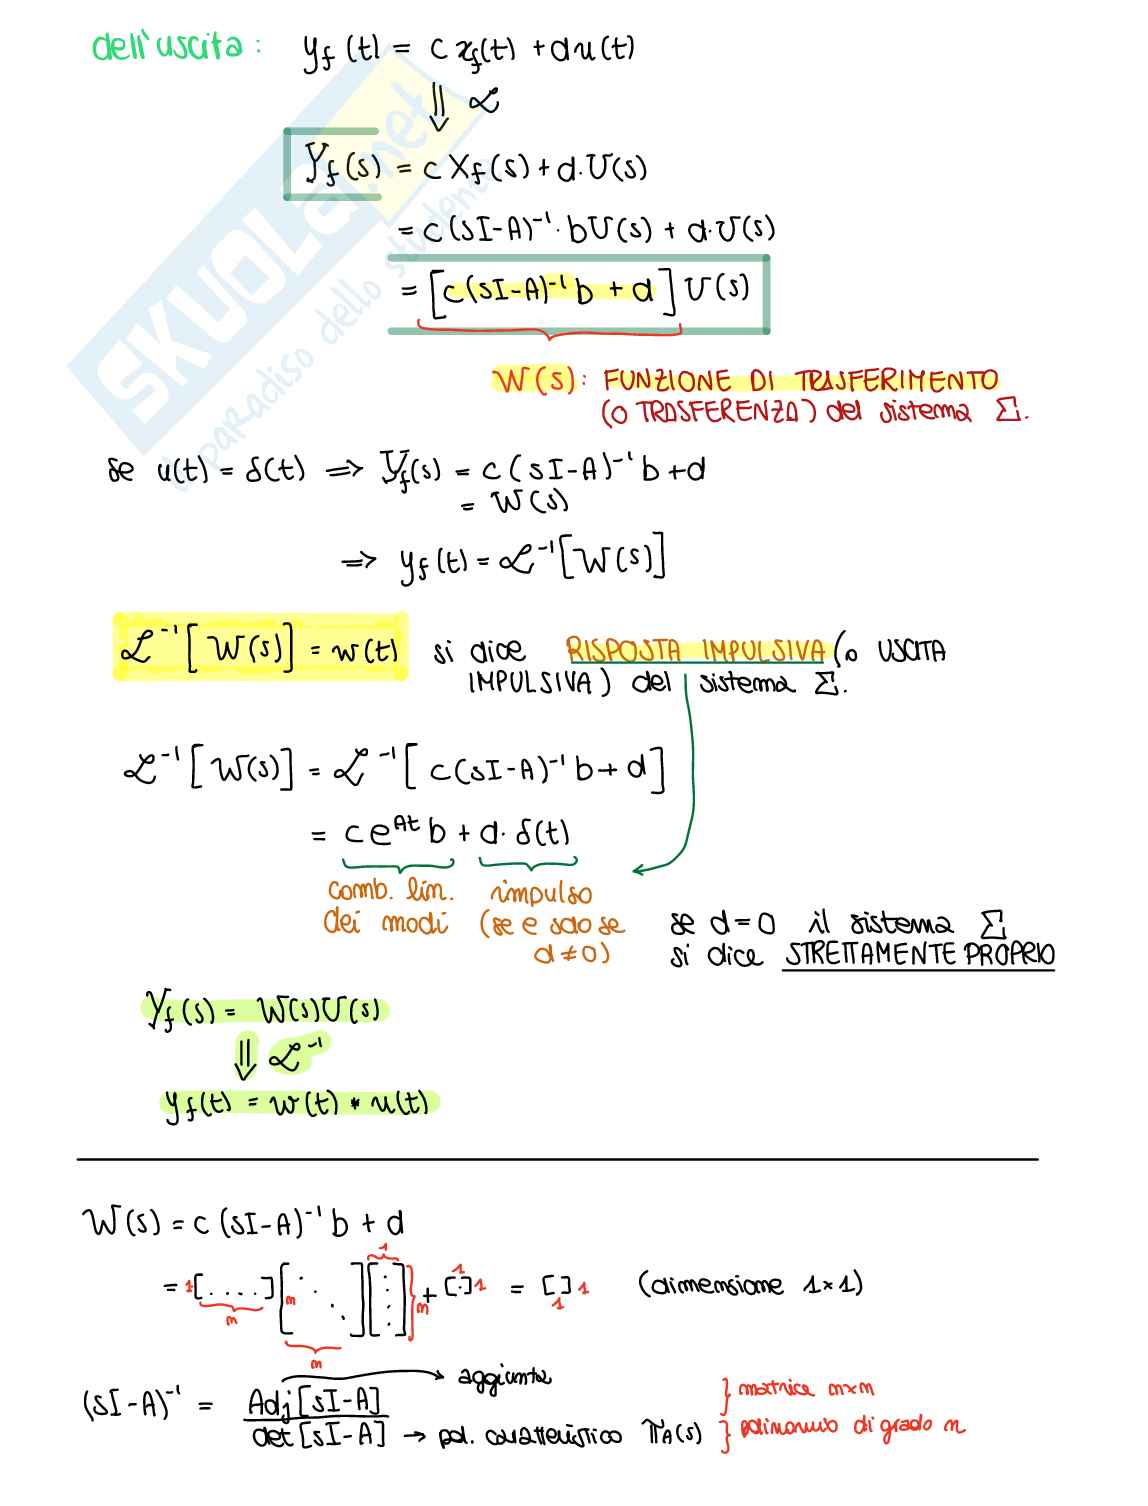 dell'uscita: y_f(t) = c x_f(t) + d u(t)
⇓ ℒ
Y_f(s) = c X_f(s) + d·U(s)
= c(sI-A)⁻¹·bU(s) + d·U(s)
= [c(sI-A)⁻¹b + d] U(s)
W(s): FUNZIONE DI TRASFERIMENTO
(o TRASFERENZA) del sistema Σ.
SKUOLA.net
il paradiso dello studente
se u(t) = δ(t) ⇒ Y_f(s) = c(sI-A)⁻¹b+d
= W(s)
⇒ y_f(t) = ℒ⁻¹[W(s)]
ℒ⁻¹[W(s)] = w(t) si dice RISPOSTA IMPULSIVA (o USCITA
IMPULSIVA) del sistema Σ.
ℒ⁻¹[W(s)] = ℒ⁻¹[c(sI-A)⁻¹b+d]
= ce^{At}b + d·δ(t)
comb. lin. impulso
dei modi (se e solo se
d≠0)
se d=0 il sistema Σ
si dice STRETTAMENTE PROPRIO
Y_f(s) = W(s)U(s)
⇓ ℒ⁻¹
y_f(t) = w(t) * u(t)
W(s) = c(sI-A)⁻¹b + d
= 1[....] n [⋱] n [⋮] 1 n + [·] 1 1 = [ ] 1 1 (dimensione 1×1)
(sI-A)⁻¹ = Adj[sI-A] → aggiunta } matrice n×n
det[sI-A] → pol. caratteristico π_A(s) } polinomio di grado n